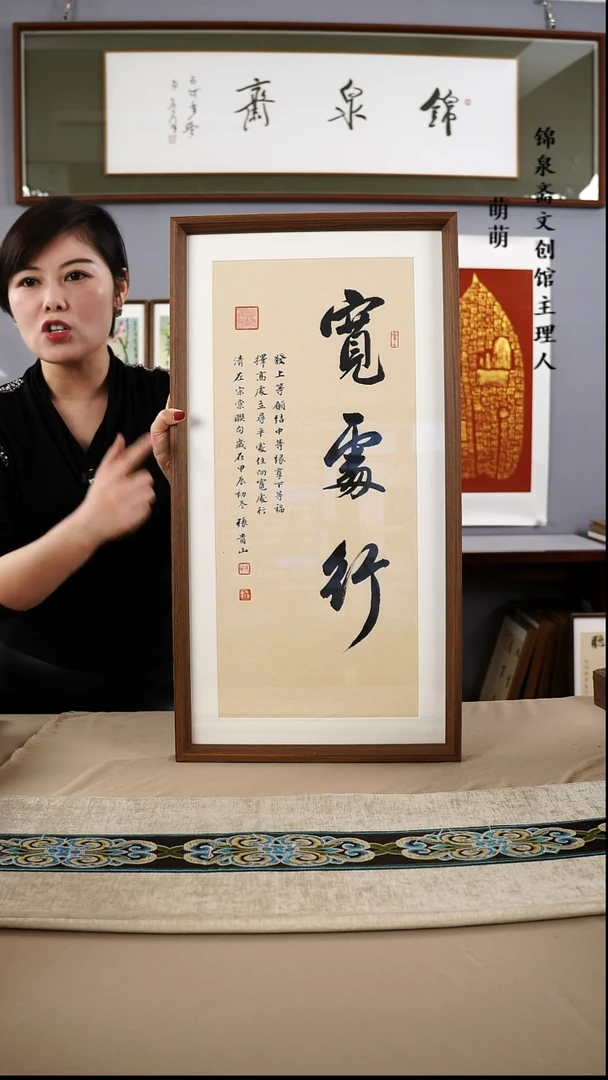 錦泉齋
锦泉斋文创馆主理人
萌萌
寬處行
發上等願結中等緣享下等福
擇高處立尋平處住向寬處行
清左宗棠聯句歲在甲辰初冬 張貴山